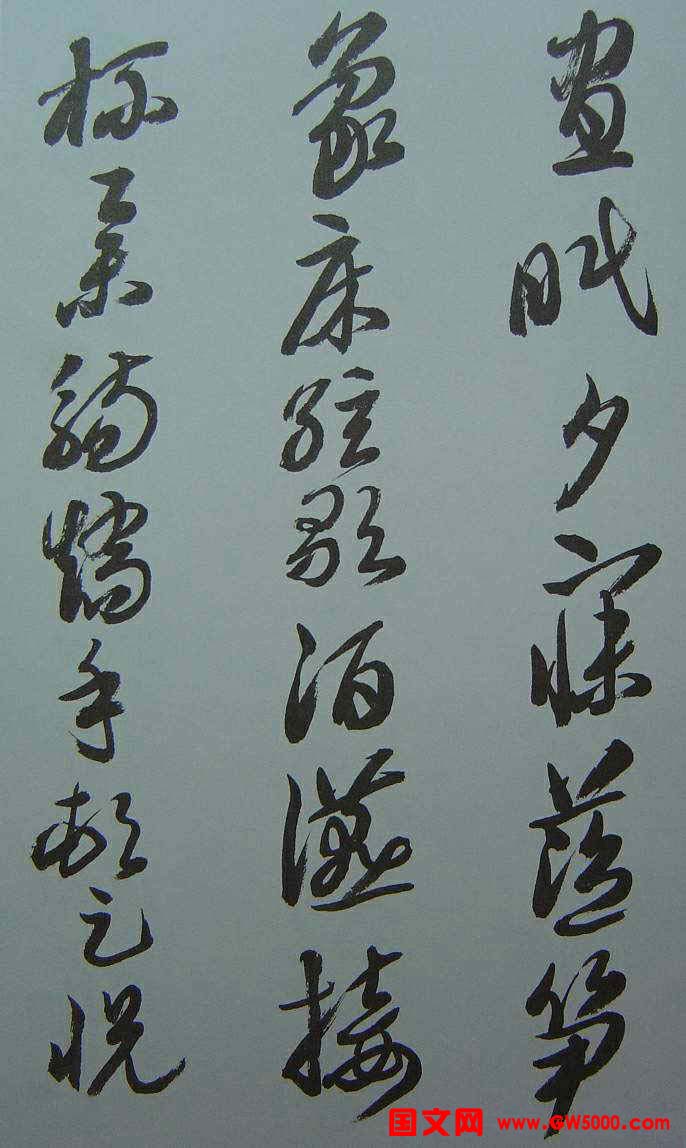 昼眠夕寐蓝笋
象床弦歌酒讌接
杯举觞矫手顿足悦
国文网 www.GW5000.com